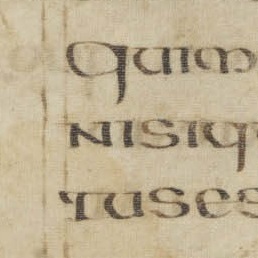 quim
nisiq
tuses